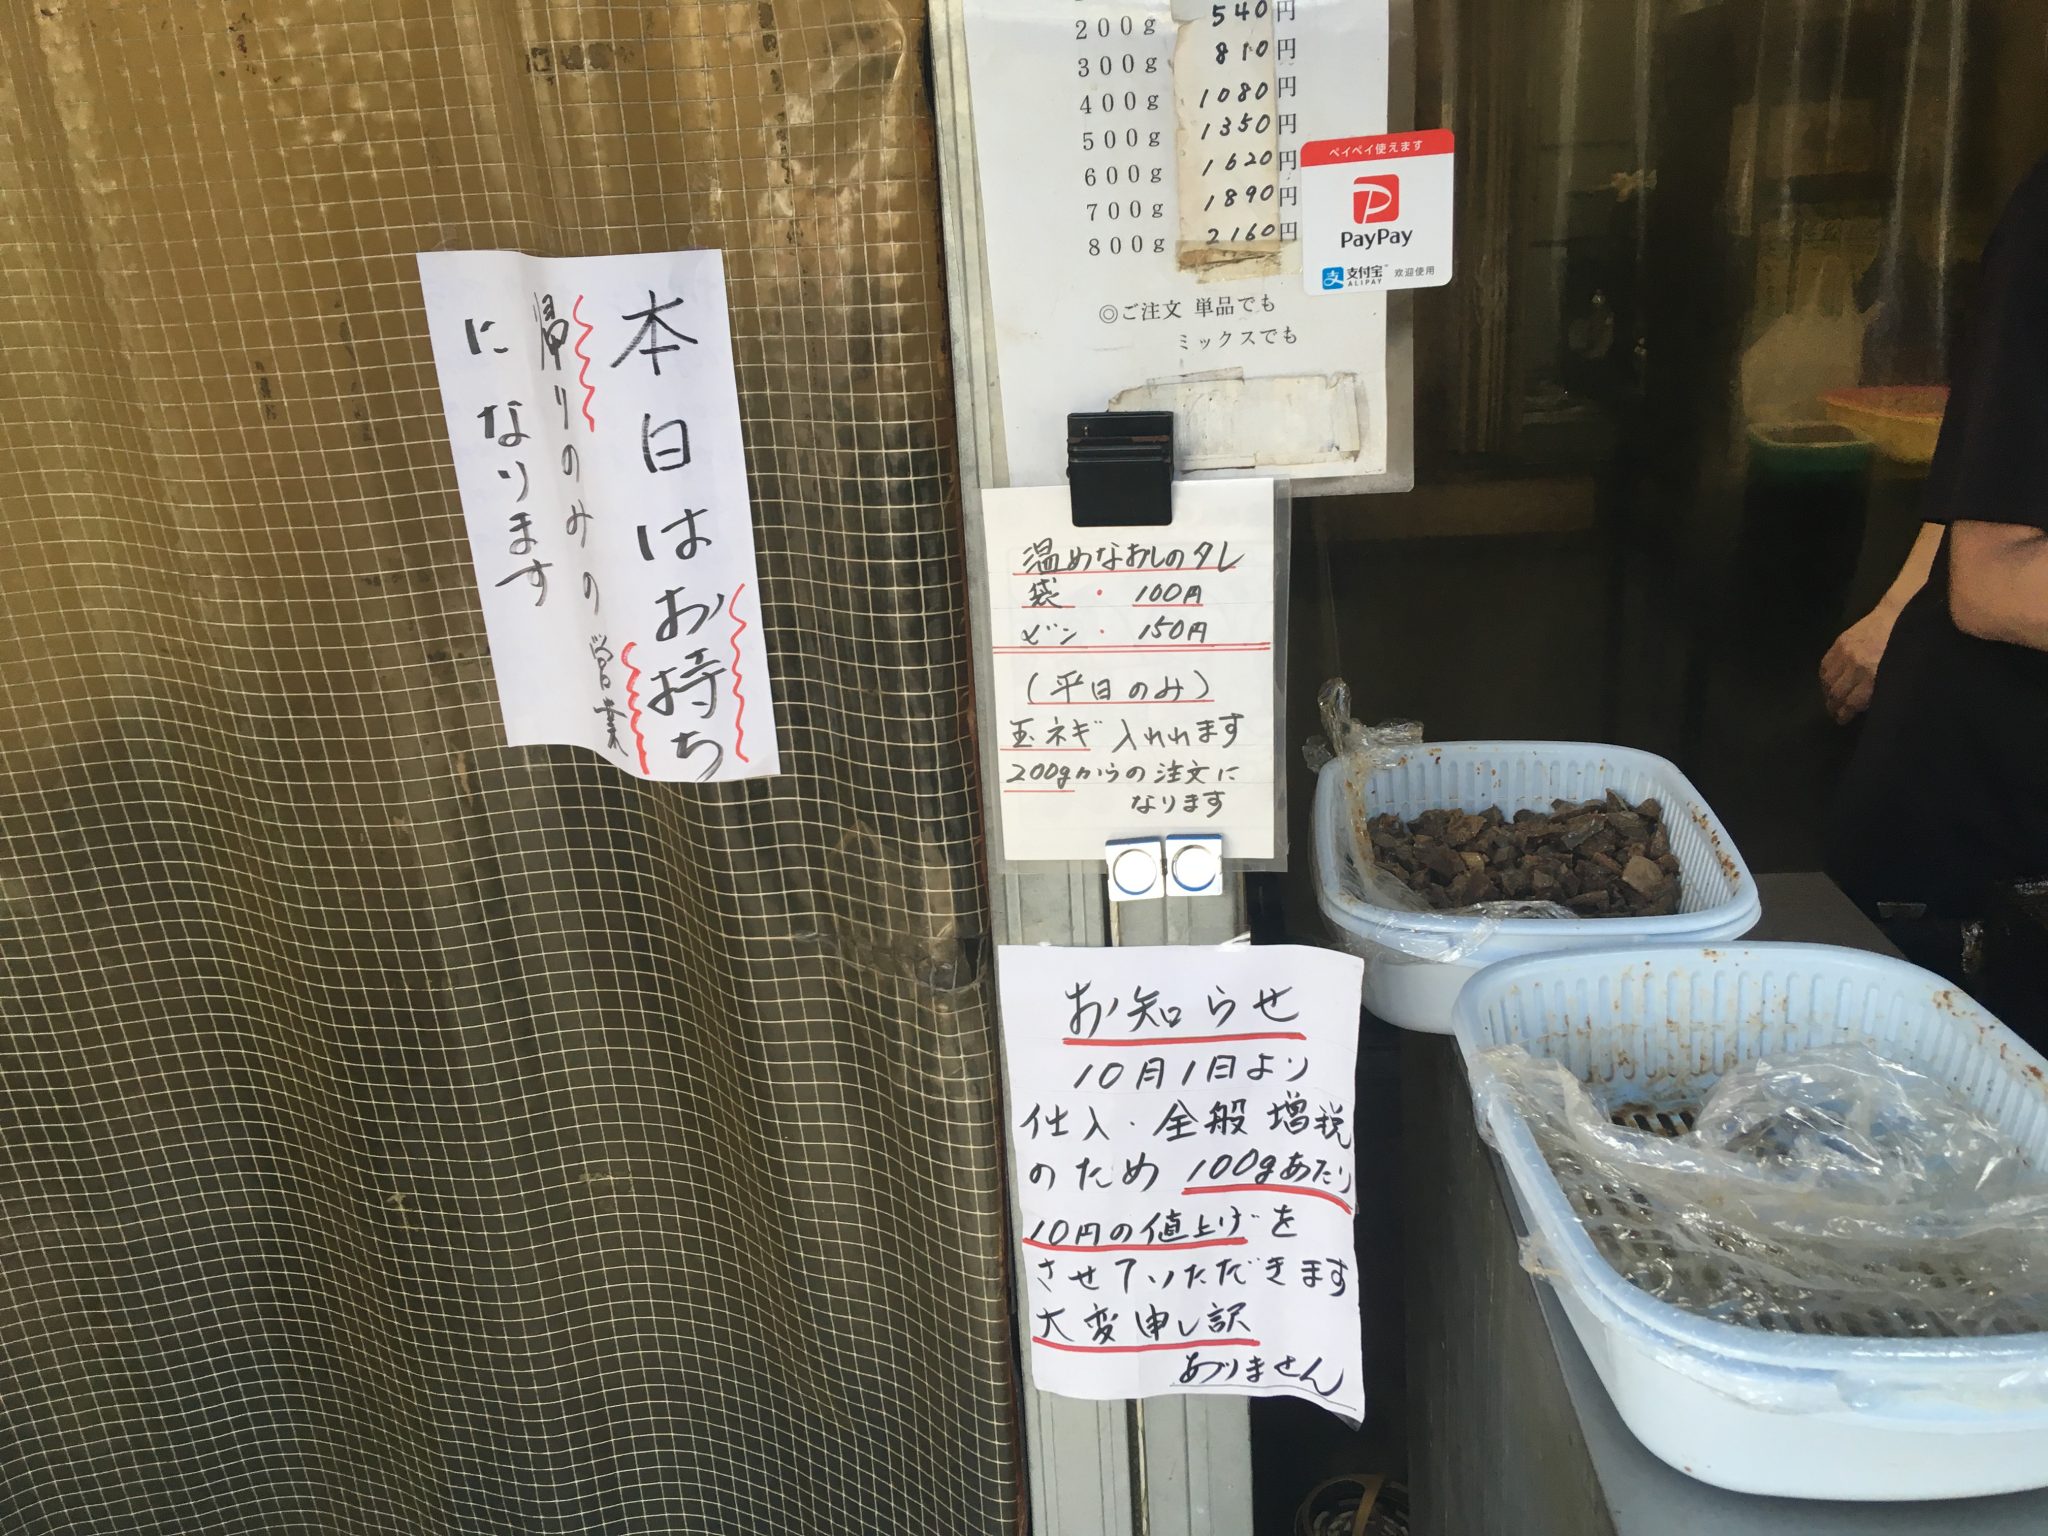 本日はお持ち
帰りのみの営業
になります
200g 540円
300g 810円
400g 1080円
500g 1350円
600g 1620円
700g 1890円
800g 2160円
◎ご注文 単品でも
ミックスでも
ペイペイ使えます
PayPay
支付宝 欢迎使用
ALIPAY
温めなおしのタレ
袋・100円
ビン・150円
(平日のみ)
玉ネギ入れれます
200gからの注文に
なります
お知らせ
10月1日より
仕入・全般増税
のため100gあたり
10円の値上げを
させていただきます
大変申し訳
ありません